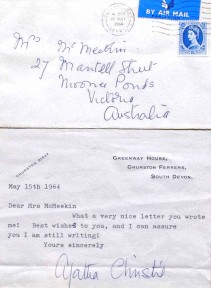 BY AIR MAIL
Mrs McMeekin
27 Mantell Street
Moonee Ponds
Victoria
Australia
CHURSTON
GREENWAY HOUSE,
CHURSTON FERRERS,
SOUTH DEVON.
May 15th 1964
Dear Mrs McMeekin
What a very nice letter you wrote
me! Best wishes to you, and I can assure
you I am still writing!
Yours sincerely
Agatha Christie